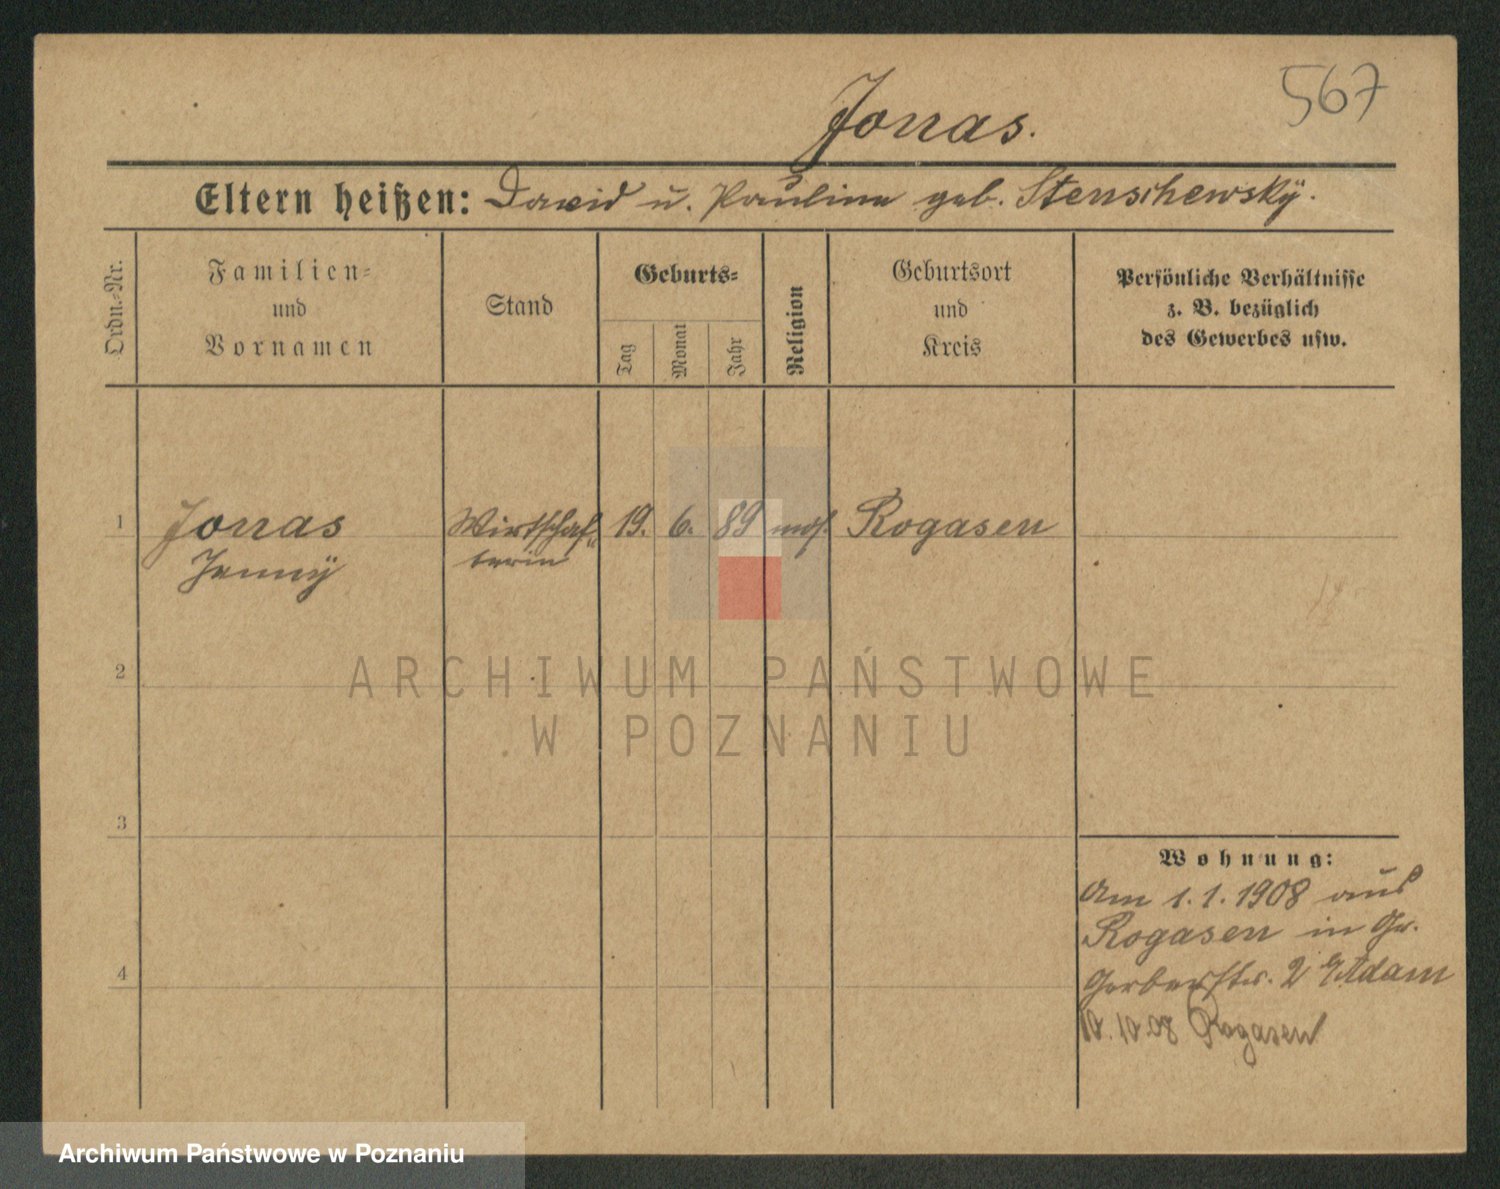 567
Jonas.
Eltern heißen: David u. Pauline geb. Stenschewsky.
Ordn.-Nr.
Familien-
und
Vornamen
Stand
Geburts-
Tag
Monat
Jahr
Religion
Geburtsort
und
Kreis
Persönliche Verhältnisse
z. B. bezüglich
des Gewerbes usw.
1 Jonas Wirtschaf- 19. 6. 89 mos. Rogasen
Jenny terin
2
ARCHIWUM PAŃSTWOWE
W POZNANIU
3
Wohnung:
Am 1.1.1908 aus
Rogasen in Gr.
4
Gerberstr. 2 Adam
10.10.08 Rogasen
Archiwum Państwowe w Poznaniu